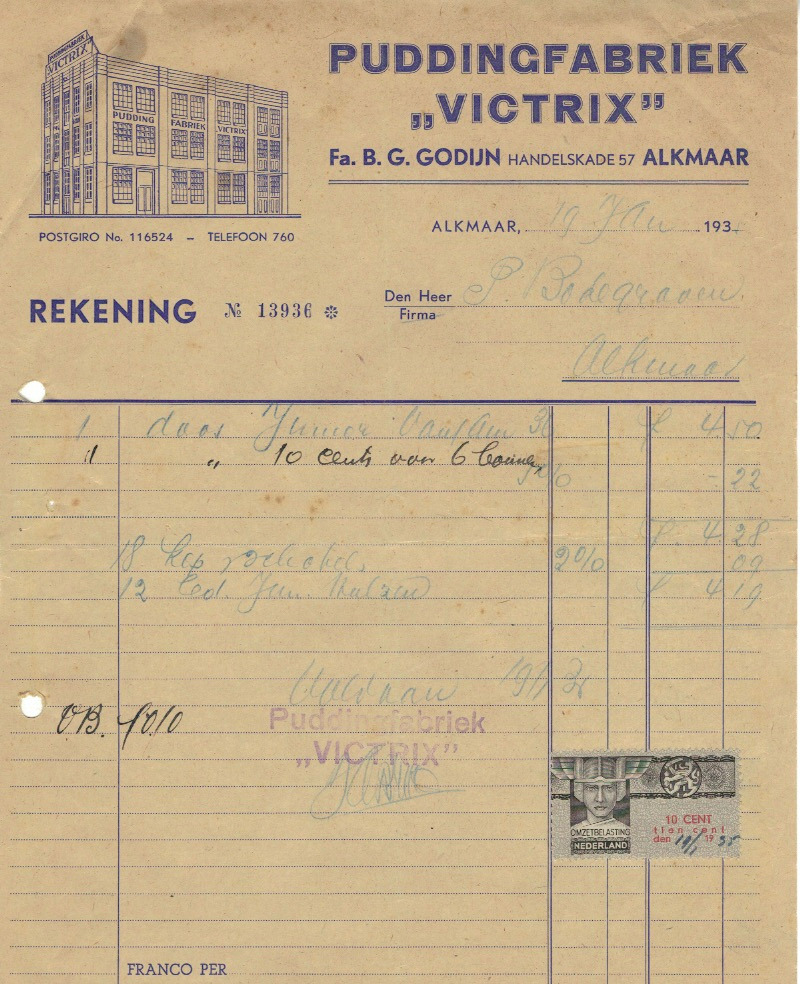 PUDDINGFABRIEK
VICTRIX
PUDDING FABRIEK VICTRIX
POSTGIRO No. 116524 – TELEFOON 760
PUDDINGFABRIEK
„VICTRIX”
Fa. B. G. GODIJN HANDELSKADE 57 ALKMAAR
ALKMAAR, 19 Jan 193
REKENING № 13936
Den Heer P. Bodegraven
Firma
Alkmaar
1 doos Junior 36 f 4.50
1 „ 10 cents voor 6
5% - 22
f. 4 28
18 2% 09
12 Jun. f 4 19
Voldaan 19/1 35
OB. 10/0
Puddingfabriek
„VICTRIX”
OMZETBELASTING
NEDERLAND
10 CENT
tien cent
den 19/1 1935
FRANCO PER